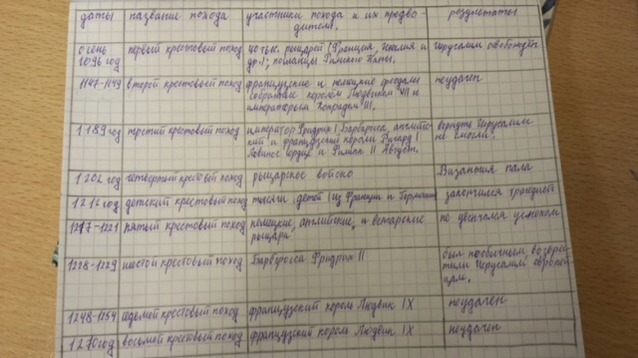 даты название похода участники похода и их предво- результаты
дители.
осень первый крестовый поход 40 тыс. рыцарей (Франция, Италия и Иерусалим освобождён
1096 год др.), команды Римского Папы.
1147-1149 второй крестовый поход французские и немецкие феодалы неудачен
собранные королём Людвиком VII и
императором Конрадом III.
1189 год третий крестовый поход император Фридрих I Барбаросса, англий- вернуть Иерусалим
ский и французский короли Ричард I не смогли.
Львиное сердце и Филипп II Август.
1202 год четвертый крестовый поход рыцарское войско Византия пала
1212 год детский крестовый поход тысячи детей из Франции и Германии закончился трагедией
1217-1221 пятый крестовый поход немецкие, английские, и венгерские не увенчался успехом
рыцари
1228-1229 шестой крестовый поход Барбаросса Фридрих II был необычным, возвра-
тили Иерусалим европей-
цам.
1248-1154 седьмой крестовый поход французский король Людвик IX неудачен
1270 год восьмой крестовый поход французский король Людвик IX неудачен